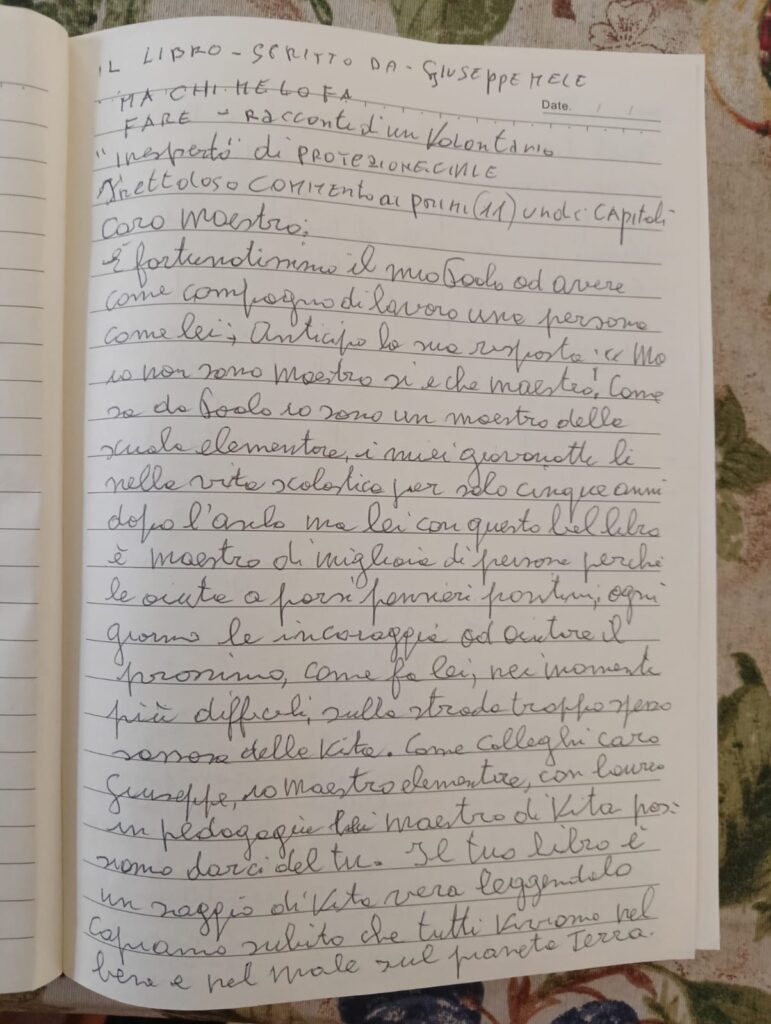 IL LIBRO - SCRITTO DA - GIUSEPPE MELE
MA CHI ME LO FA
Date. / /
FARE - Racconti d'un Volontario
"inesperto" di PROTEZIONE CIVILE
Frettoloso COMMENTO ai PRIMI (11) undici CAPitoli
Caro Maestro;
È fortunatissimo il mio ad avere
come compagno di lavoro una persona
come lei; Anticipo la sua risposta: "Ma
io non sono maestro si e che maestro! Come
sa da io sono un maestro della
scuola elementare, i miei giovanotti li
nella vita scolastica per solo cinque anni
dopo l'asilo ma lei con questo bel libro
è maestro di migliaia di persone perché
le aiuta a porsi pensieri positivi, ogni
giorno le incoraggia ad aiutare il
prossimo, come fa lei, nei momenti
più difficili, sulla strada troppo spesso
sassosa della Vita. Come colleghi caro
Giuseppe, io maestro elementare, con laurea
in pedagogia lei maestro di Vita pos=
siamo darci del tu. Il tuo libro è
un saggio di Vita vera leggendolo
Capiamo subito che tutti viviamo nel
bene e nel male sul pianeta Terra.